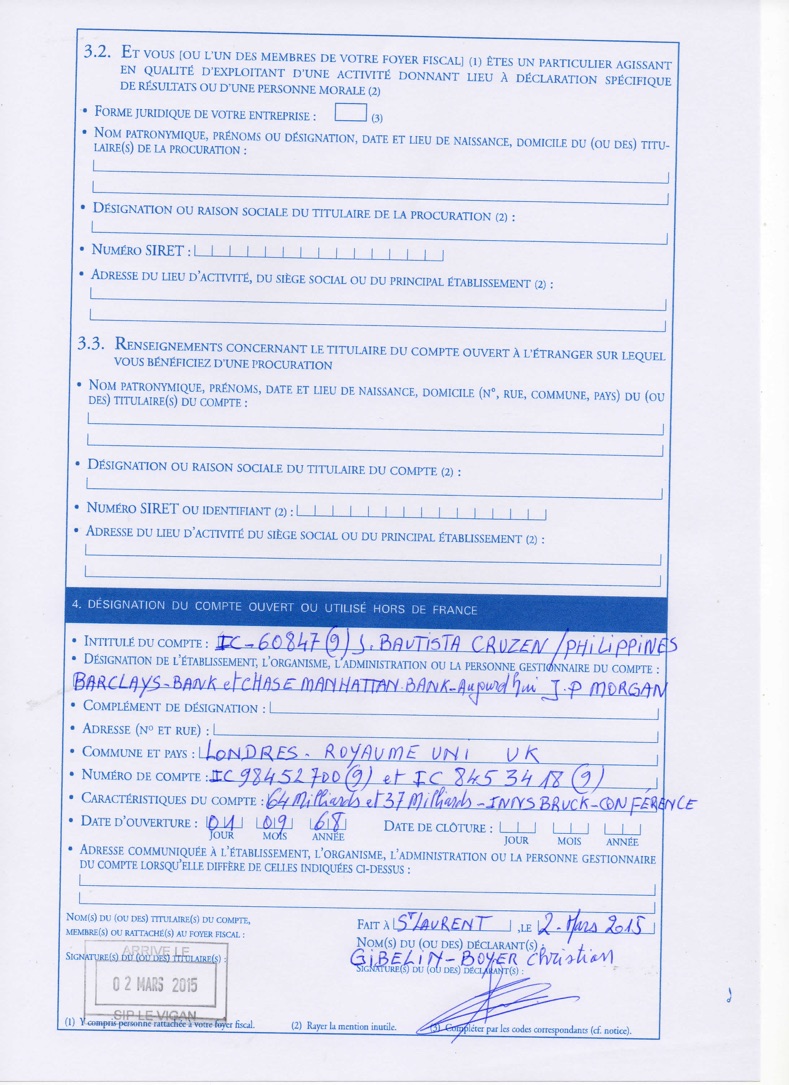 3.2. ET VOUS [OU L'UN DES MEMBRES DE VOTRE FOYER FISCAL] (1) ÊTES UN PARTICULIER AGISSANT
EN QUALITÉ D'EXPLOITANT D'UNE ACTIVITÉ DONNANT LIEU À DÉCLARATION SPÉCIFIQUE
DE RÉSULTATS OU D'UNE PERSONNE MORALE (2)
• FORME JURIDIQUE DE VOTRE ENTREPRISE : (3)
• NOM PATRONYMIQUE, PRÉNOMS OU DÉSIGNATION, DATE ET LIEU DE NAISSANCE, DOMICILE DU (OU DES) TITU-
LAIRE(S) DE LA PROCURATION :
• DÉSIGNATION OU RAISON SOCIALE DU TITULAIRE DE LA PROCURATION (2) :
• NUMÉRO SIRET :
• ADRESSE DU LIEU D'ACTIVITÉ, DU SIÈGE SOCIAL OU DU PRINCIPAL ÉTABLISSEMENT (2) :
3.3. RENSEIGNEMENTS CONCERNANT LE TITULAIRE DU COMPTE OUVERT À L'ÉTRANGER SUR LEQUEL
VOUS BÉNÉFICIEZ D'UNE PROCURATION
• NOM PATRONYMIQUE, PRÉNOMS, DATE ET LIEU DE NAISSANCE, DOMICILE (N°, RUE, COMMUNE, PAYS) DU (OU
DES) TITULAIRE(S) DU COMPTE :
• DÉSIGNATION OU RAISON SOCIALE DU TITULAIRE DU COMPTE (2) :
• NUMÉRO SIRET OU IDENTIFIANT (2) :
• ADRESSE DU LIEU D'ACTIVITÉ DU SIÈGE SOCIAL OU DU PRINCIPAL ÉTABLISSEMENT (2) :
4. DÉSIGNATION DU COMPTE OUVERT OU UTILISÉ HORS DE FRANCE
• INTITULÉ DU COMPTE : IC-60847(9) J. BAUTISTA CRUZEN/PHILIPPINES
• DÉSIGNATION DE L'ÉTABLISSEMENT, L'ORGANISME, L'ADMINISTRATION OU LA PERSONNE GESTIONNAIRE DU COMPTE :
BARCLAYS-BANK et CHASE MANHATTAN.BANK-Aujourd'hui J.P MORGAN
• COMPLÉMENT DE DÉSIGNATION :
• ADRESSE (N° ET RUE) :
• COMMUNE ET PAYS : LONDRES - ROYAUME UNI UK
• NUMÉRO DE COMPTE : IC 98452700(9) et IC 8453418(9)
• CARACTÉRISTIQUES DU COMPTE : 64 Milliards et 37 Milliards-INNYSBRUCK-CONFÉRENCE
• DATE D'OUVERTURE : 01 09 68 DATE DE CLÔTURE :
JOUR MOIS ANNÉE JOUR MOIS ANNÉE
• ADRESSE COMMUNIQUÉE À L'ÉTABLISSEMENT, L'ORGANISME, L'ADMINISTRATION OU LA PERSONNE GESTIONNAIRE
DU COMPTE LORSQU'ELLE DIFFÈRE DE CELLES INDIQUÉES CI-DESSUS :
NOM(S) DU (OU DES) TITULAIRE(S) DU COMPTE,
MEMBRE(S) OU RATTACHÉ(S) AU FOYER FISCAL :
SIGNATURE(S) DU (OU DES) TITULAIRE(S) :
ARRIVE LE
02 MARS 2015
SIP LE VIGAN
FAIT À ST LAURENT , LE 2-Mars 2015
NOM(S) DU (OU DES) DÉCLARANT(S) :
GIBELIN-BOYER Christian
SIGNATURE(S) DU (OU DES) DÉCLARANT(S) :
(1) Y compris personne rattachée à votre foyer fiscal. (2) Rayer la mention inutile. (3) Compléter par les codes correspondants (cf. notice).